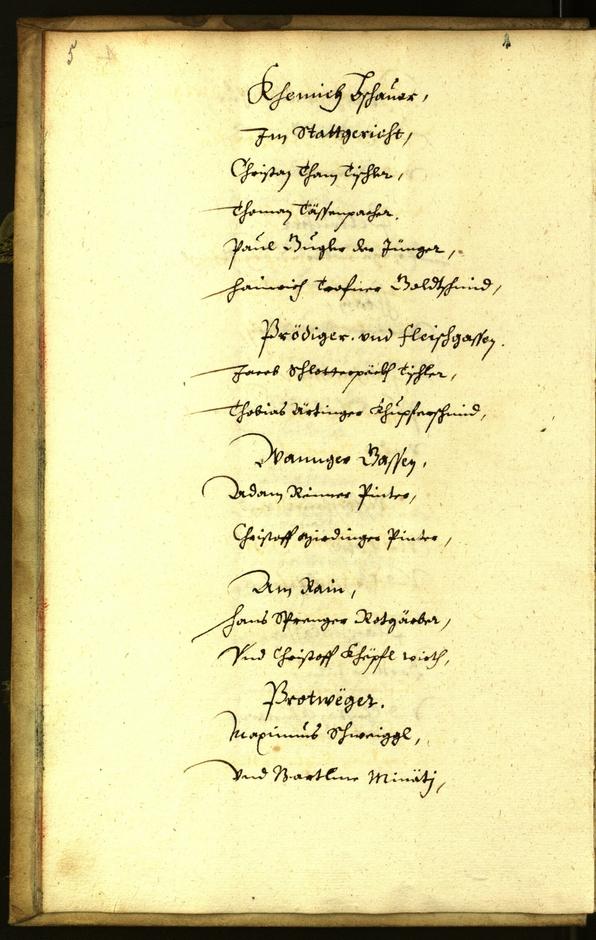 5
Khemich bschauer,
Im Stattgericht,
Christan Tham Tischler,
Thoman Tässenpacher.
Paul Gugler der Jünger,
Hainrich Trafner Goldtschmid,
Prödiger. vnd Fleischgassen.
Jacob Schlotterpäckh Tischler,
Thobias Ärtinger Khupferschmid,
Wannger Gassen,
Adam Rinner Pinter,
Christoff Pinter,
Am Rain,
Hans Sprenger Rotgärber,
Vnd Christoff Khöpfl wirth,
Protwëger.
Maximus Schweiggl,
Vnd Bartlme Minäti,